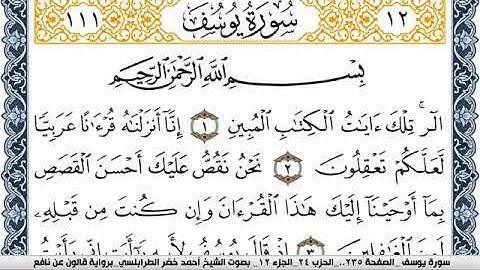 ١٢ سُورَةُ يُوسُفَ ١١١
بِسْمِ اللَّهِ الرَّحْمَٰنِ الرَّحِيمِ
الٓر تِلْكَ ءَايَٰتُ الْكِتَٰبِ الْمُبِينِ ١ إِنَّآ أَنزَلْنَٰهُ قُرْءَٰناً عَرَبِيّاً
لَّعَلَّكُمْ تَعْقِلُونَ ٢ نَحْنُ نَقُصُّ عَلَيْكَ أَحْسَنَ الْقَصَصِ
بِمَآ أَوْحَيْنَآ إِلَيْكَ هَٰذَا الْقُرْءَانَ وَإِن كُنتَ مِن قَبْلِهِ
لَمِنَ الْغَٰفِلِينَ ٣ إِذْ قَالَ يُوسُفُ لِأَبِيهِ يَٰٓأَبَتِ إِنِّي رَأَيْتُ
سورة يوسف _الصفحة ٢٣٥.._الحزب ٢٤_الجزء ١٢_ بصوت الشيخ أحمد خضر الطرابلسي_ برواية قالون عن نافع